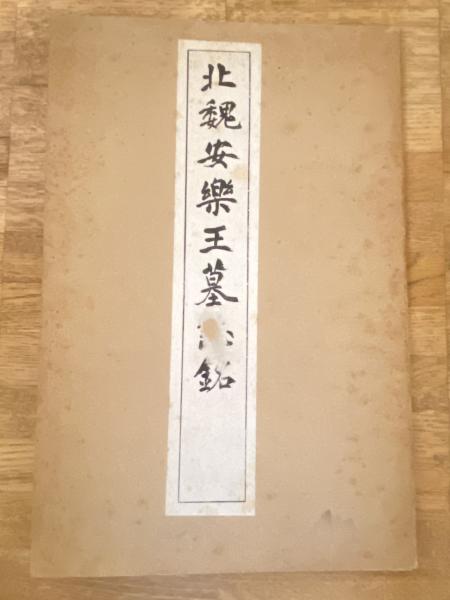 北魏安樂王墓銘